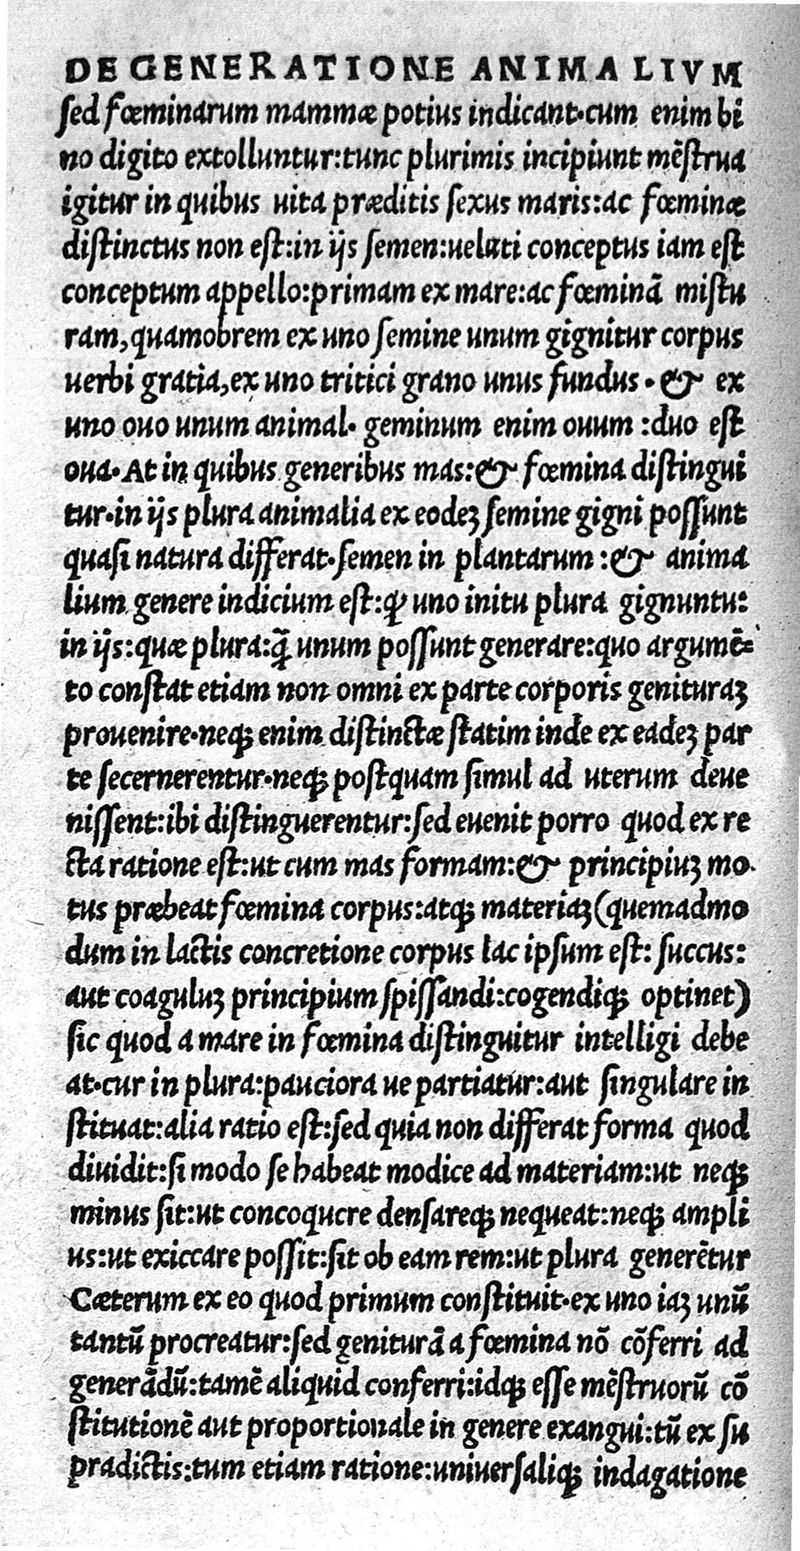 DE GENERATIONE ANIMALIVM
sed fœminarum mammæ potius indicant·cum enim bi
no digito extolluntur:tunc plurimis incipiunt mẽstrua
igitur in quibus uita præditis sexus maris:ac fœminæ
distinctus non est:in ijs semen:uelati conceptus iam est
conceptum appello:primam ex mare:ac fœminã mistu
ram,quamobrem ex uno semine unum gignitur corpus
uerbi gratia,ex uno tritici grano unus fundus · & ex
uno ouo unum animal· geminum enim ouum :duo est
oua·At in quibus generibus mas:& fœmina distingui
tur·in ijs plura animalia ex eodeꝫ semine gigni possunt
quasi natura differat·semen in plantarum :& anima
lium genere indicium est:ꝙ uno initu plura gignuntu:
in ijs:quæ plura:q̃ unum possunt generare:quo argumẽ=
to constat etiam non omni ex parte corporis genituraꝫ
prouenire·neqꝫ enim distinctæ statim inde ex eadeꝫ par
te secernerentur·neqꝫ postquam simul ad uterum deue
nissent:ibi distinguerentur:sed euenit porro quod ex re
cta ratione est:ut cum mas formam:& principiuꝫ mo·
tus præbeat fœmina corpus:atqꝫ materiaꝫ(quemadmo
dum in lactis concretione corpus lac ipsum est: succus:
aut coaguluꝫ principium spissandi:cogendiqꝫ optinet)
sic quod a mare in fœmina distinguitur intelligi debe
at·cur in plura:pauciora ue partiatur:aut singulare in
stituat:alia ratio est:sed quia non differat forma quod
diuidit:si modo se habeat modice ad materiam:ut neqꝫ
minus sit:ut concoqucre densareqꝫ nequeat:neqꝫ ampli
us:ut exiccare possit:sit ob eam rem:ut plura generẽtur
Cæterum ex eo quod primum constituit·ex uno iaꝫ unũ
tantũ procreatur:sed geniturã a fœmina nõ cõferri ad
generãdũ:tamẽ aliquid conferri:idqꝫ esse mẽstruorũ cõ
stitutionẽ aut proportionale in genere exangui:tũ ex su
pradictis:tum etiam ratione:uniuersaliqꝫ indagatione